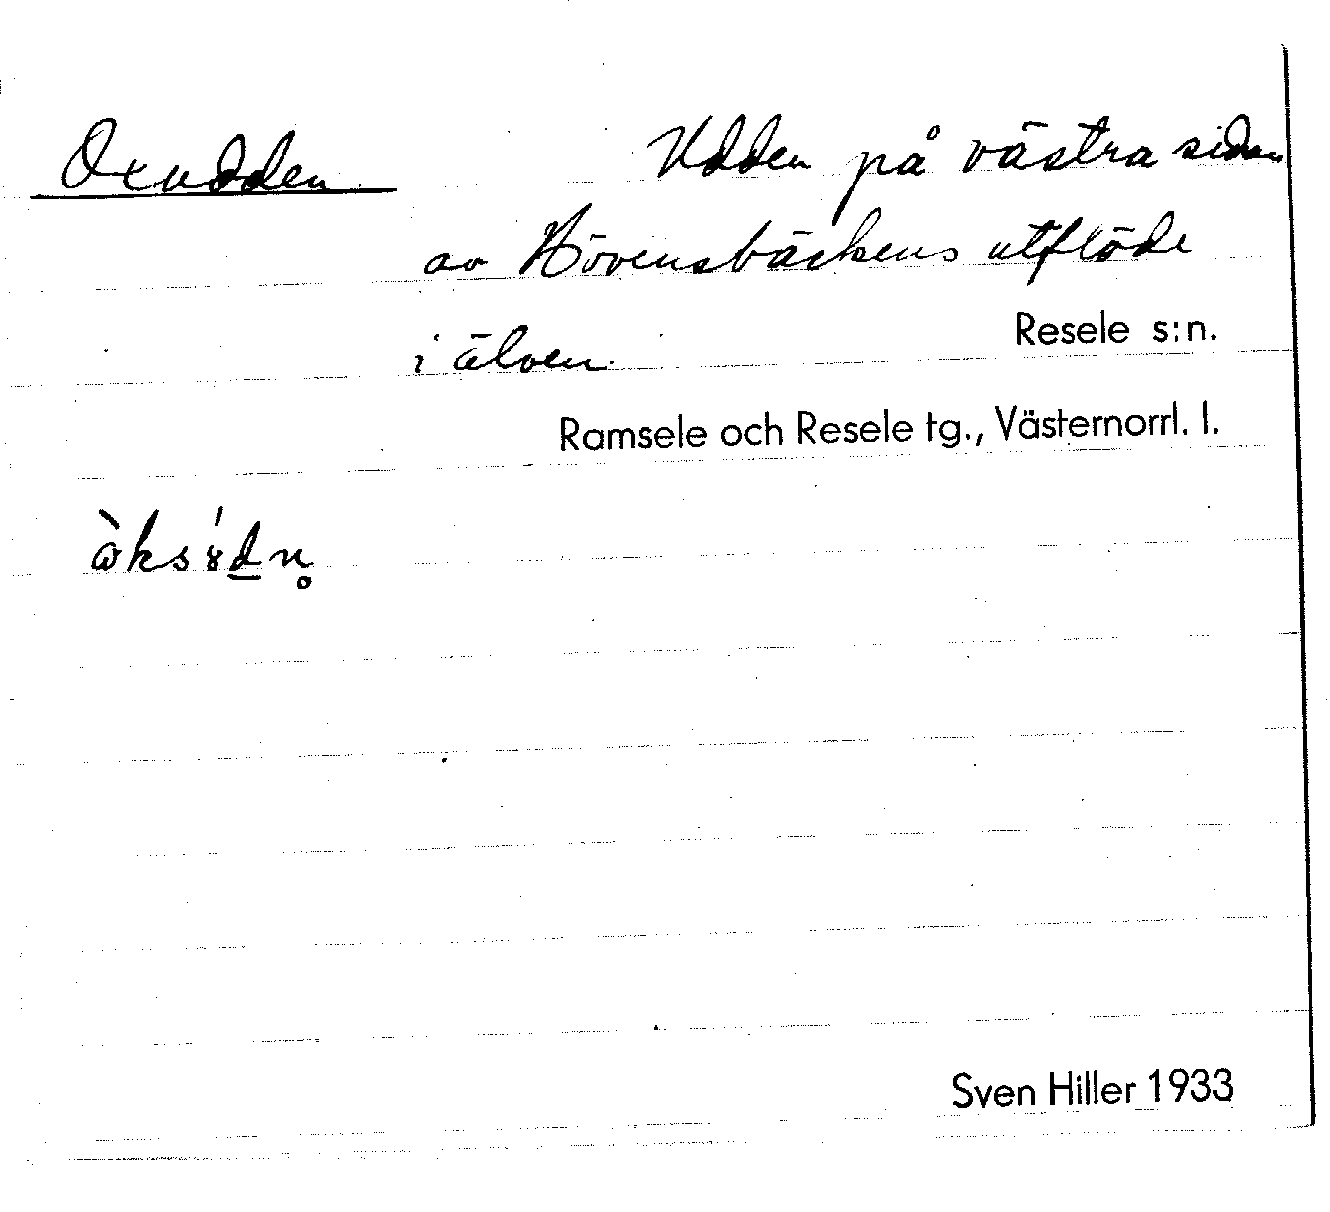 Oxudden Udden på västra sidan
av Hövensbäckens utflöde
i älven.
Resele s:n.
Ramsele och Resele tg., Västernorrl. l.
Sven Hiller 1933